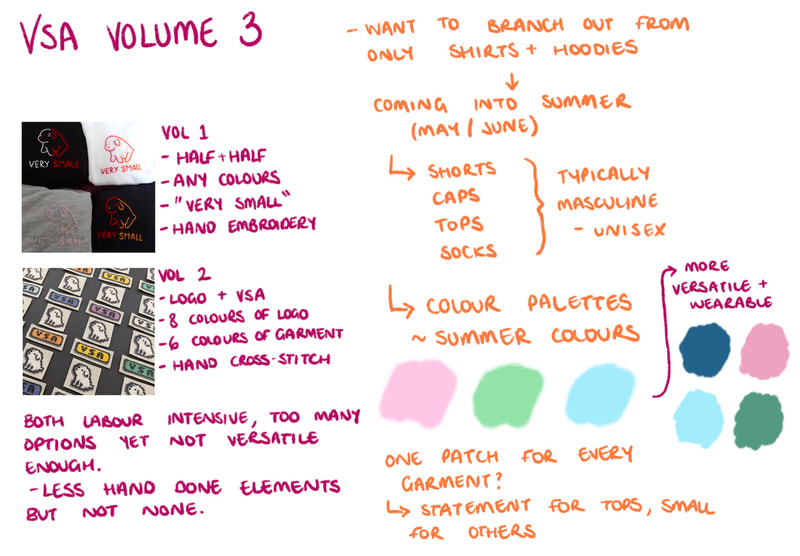 VSA VOLUME 3
VOL 1
- HALF + HALF
- ANY COLOURS
- "VERY SMALL"
- HAND EMBROIDERY
VERY SMALL
VERY SMALL
VERY SMALL
VERY SMALL
VOL 2
- LOGO + VSA
- 8 COLOURS OF LOGO
- 6 COLOURS OF GARMENT
- HAND CROSS-STITCH
VSA
VSA
VSA
VSA
VSA
VSA
BOTH LABOUR INTENSIVE, TOO MANY
OPTIONS YET NOT VERSATILE
ENOUGH.
- LESS HAND DONE ELEMENTS
BUT NOT NONE.
- WANT TO BRANCH OUT FROM
ONLY SHIRTS + HOODIES
↓
COMING INTO SUMMER
(MAY / JUNE)
↳ SHORTS
CAPS
TOPS
SOCKS
TYPICALLY
MASCULINE
- UNISEX
↳ COLOUR PALETTES
~ SUMMER COLOURS
MORE
VERSATILE +
WEARABLE
ONE PATCH FOR EVERY
GARMENT?
↳ STATEMENT FOR TOPS, SMALL
FOR OTHERS